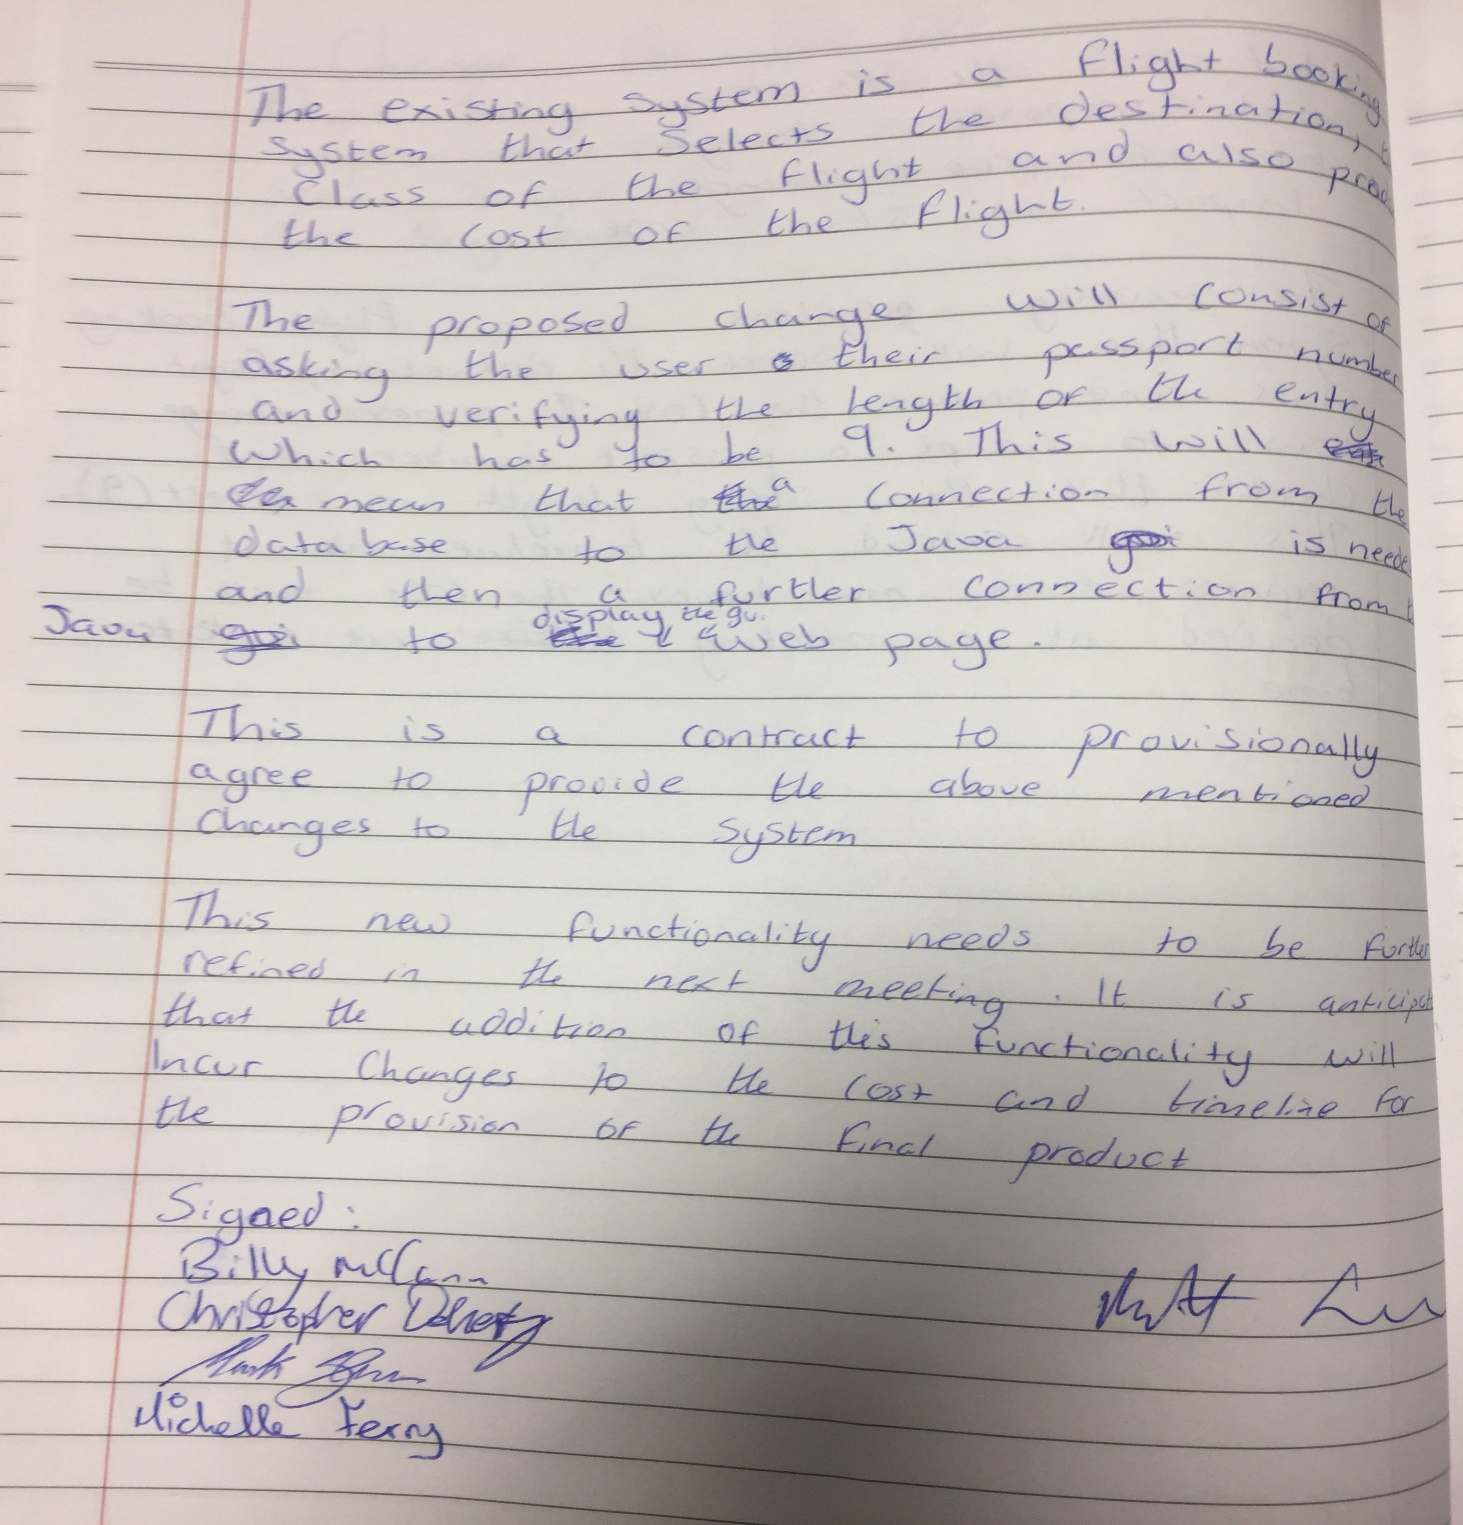 The existing system is a flight booking
system that Selects the destination,
Class of the flight and also
the cost of the flight.
The proposed change will consist of
asking the user their passport number
and verifying the length of the entry
which has to be 9. This will
mean that a connection from the
database to the Java is neede
and then a further connection from
Java to display the gui web page.
This is a contract to provisionally
agree to provide the above mentioned
Changes to the system
This new functionality needs to be further
refined in the next meeting. It is anticipat
that the addition of this functionality will
Incur Changes to the cost and timeline for
the provision of the final product
Signed:
Billy McCann
Christopher Doherty
Mark
Michelle Ferry